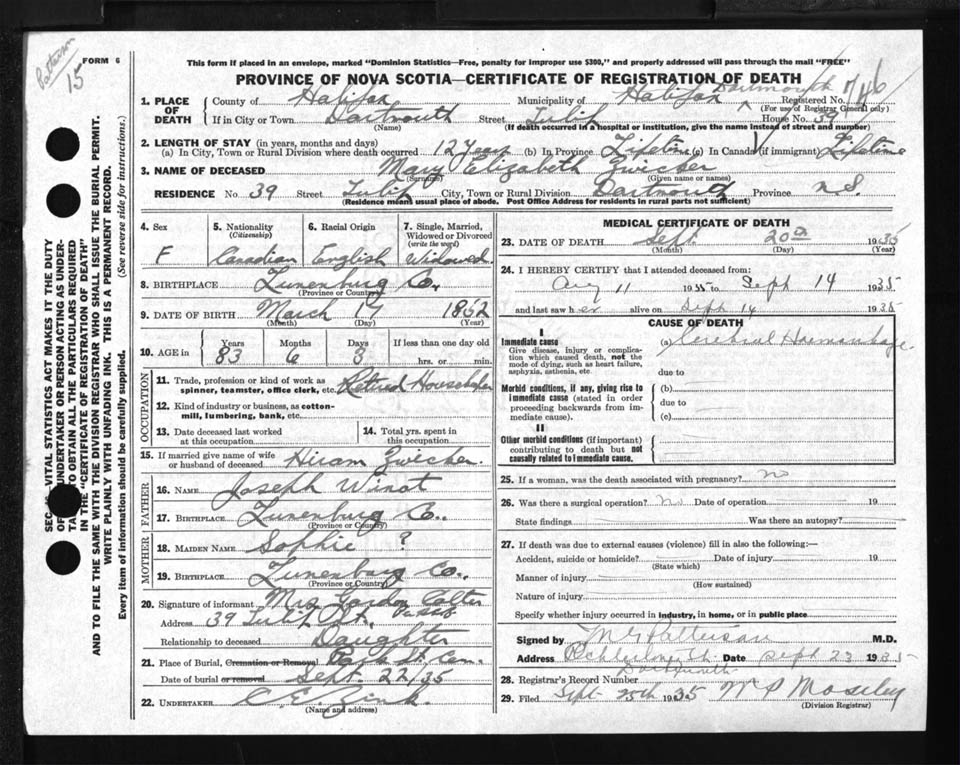 Patterson
15
FORM 6
This form if placed in an envelope, marked "Dominion Statistics—Free, penalty for improper use $300," and properly addressed will pass through the mail "FREE"
PROVINCE OF NOVA SCOTIA—CERTIFICATE OF REGISTRATION OF DEATH
Dartmouth
1. PLACE OF DEATH { County of Halifax Municipality of Halifax Registered No. 746
(For use of Registrar General only)
If in City or Town Dartmouth Street Tulip House No. 39
(Name) (If death occurred in a hospital or institution, give the name instead of street and number)
2. LENGTH OF STAY (in years, months and days)
(a) In City, Town or Rural Division where death occurred 12 Years (b) In Province Lifetime (c) In Canada (if immigrant) Lifetime
3. NAME OF DECEASED Mary Elizabeth Zwicker
(Surname) (Given name or names)
RESIDENCE No. 39 Street Tulip City, Town or Rural Division Dartmouth Province N.S.
(Residence means usual place of abode. Post Office Address for residents in rural parts not sufficient)
4. Sex F
5. Nationality (Citizenship) Canadian
6. Racial Origin English
7. Single, Married, Widowed or Divorced (write the word) Widowed
8. BIRTHPLACE Lunenburg Co.
(Province or Country)
9. DATE OF BIRTH March 17 1852
(Month) (Day) (Year)
10. AGE in Years 83 Months 6 Days 3 If less than one day old hrs. or min.
OCCUPATION
11. Trade, profession or kind of work as spinner, teamster, office clerk, etc. Retired
12. Kind of industry or business, as cotton-mill, lumbering, bank, etc.
13. Date deceased last worked at this occupation
14. Total yrs. spent in this occupation
15. If married give name of wife or husband of deceased Hiram Zwicker
FATHER
16. NAME Joseph Winot
17. BIRTHPLACE Lunenburg Co.
(Province or Country)
MOTHER
18. MAIDEN NAME Sophie ?
19. BIRTHPLACE Lunenburg Co.
(Province or Country)
20. Signature of informant Mrs. Gordon Colter
Address 39 Tulip St.
Relationship to deceased Daughter
21. Place of Burial, Cremation or Removal Park St. Cem.
Date of burial or removal Sept. 22/35
22. UNDERTAKER C. E. Zink
(Name and address)
MEDICAL CERTIFICATE OF DEATH
23. DATE OF DEATH Sept. 20th 1935
(Month) (Day) (Year)
24. I HEREBY CERTIFY that I attended deceased from:
Aug 11 1935 to Sept 14 1935
and last saw her alive on Sept 14 1935
CAUSE OF DEATH
I
Immediate cause
Give disease, injury or complication which caused death, not the mode of dying, such as heart failure, asphyxia, asthenia, etc.
(a) Cerebral Haemorrhage
due to
Morbid conditions, if any, giving rise to immediate cause (stated in order proceeding backwards from immediate cause).
(b)
due to
(c)
II
Other morbid conditions (if important) contributing to death but not causally related to immediate cause.
25. If a woman, was the death associated with pregnancy? No
26. Was there a surgical operation? No Date of operation 19
State findings Was there an autopsy?
27. If death was due to external causes (violence) fill in also the following:—
Accident, suicide or homicide? Date of injury 19
(State which)
Manner of injury
(How sustained)
Nature of injury
Specify whether injury occurred in industry, in home, or in public place
Signed by M G Patterson M.D.
Address Dartmouth Date Sept 23 1935
28. Registrar's Record Number
29. Filed Sept 25th 1935 W P Moseley
(Division Registrar)
VITAL STATISTICS ACT MAKES IT THE DUTY
OF UNDERTAKER OR PERSON ACTING AS UNDER-
TO OBTAIN ALL THE PARTICULARS REQUIRED
IN THE "CERTIFICATE OF REGISTRATION OF DEATH"
AND TO FILE THE SAME WITH THE DIVISION REGISTRAR WHO SHALL ISSUE THE BURIAL PERMIT.
WRITE PLAINLY WITH UNFADING INK. THIS IS A PERMANENT RECORD.
Every item of information should be carefully supplied. (See reverse side for instructions.)